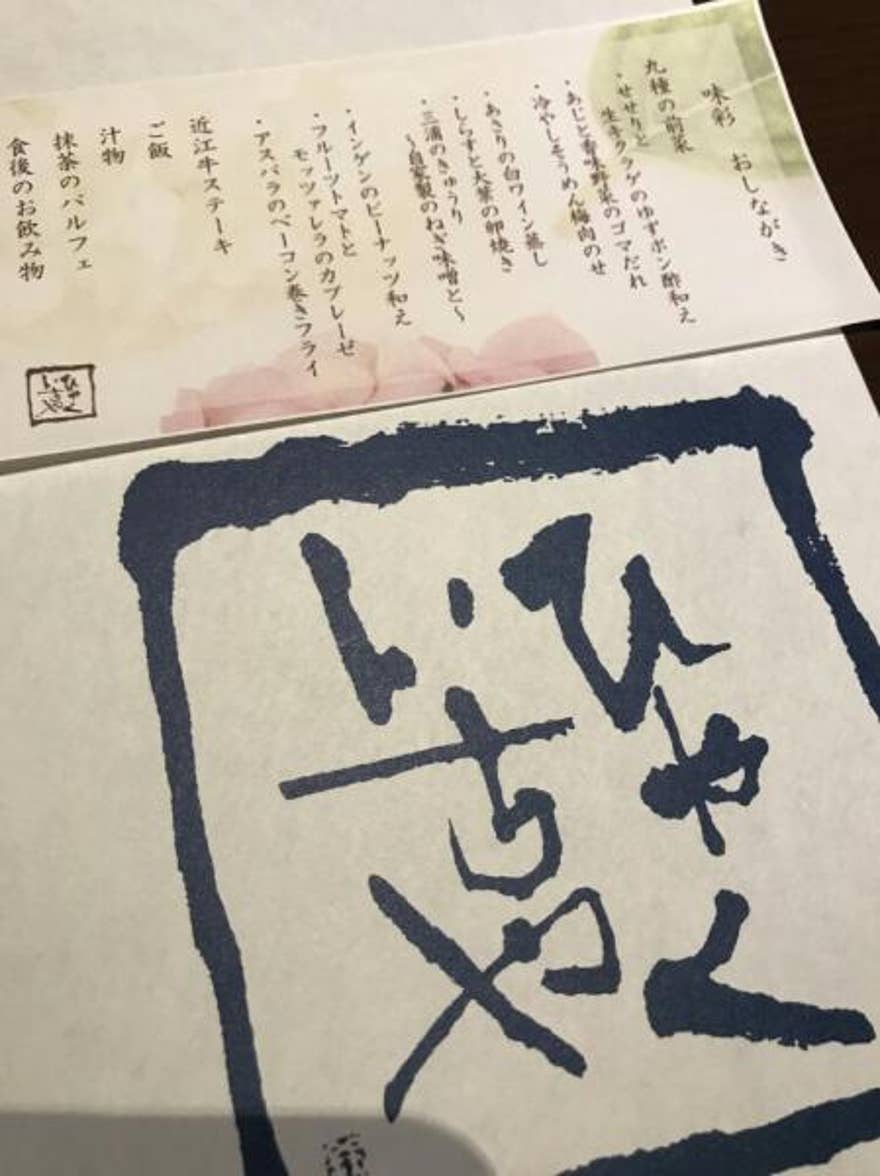 味彩 おしながき
九種の前菜
・せせりと
生キクラゲのゆずポン酢和え
・あじと香味野菜のゴマだれ
・冷やしそうめん梅肉のせ
・あさりの白ワイン蒸し
・しらすと大葉の卵焼き
・三浦のきゅうり
~自家製のねぎ味噌と~
・インゲンのピーナッツ和え
・フルーツトマトと
モッツァレラのカプレーゼ
・アスパラのベーコン巻きフライ
近江牛ステーキ
ご飯
汁物
抹茶のパルフェ
食後のお飲み物
ひゃく